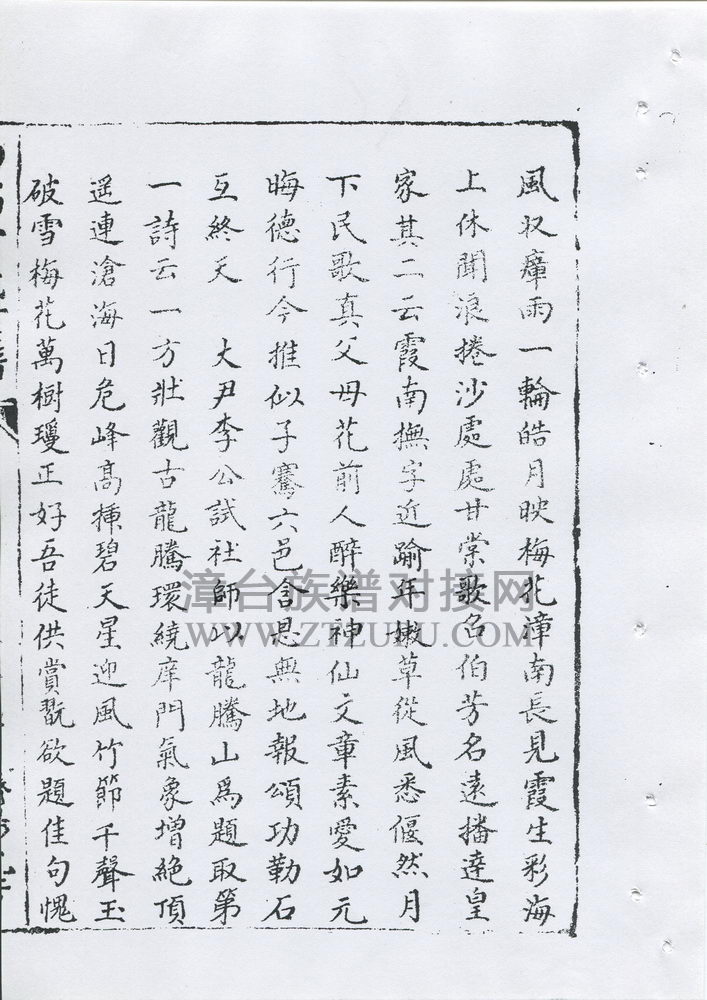 風収瘴雨一輪皓月映梅花漳南長見霞生彩海
上休聞浪捲沙處處甘棠歌名伯芳名遠播達皇
家其二云霞南撫字近踰年嫩草從風悉偃然月
下民歌真父母花前人醉樂神仙文章素愛如元
晦德行今推似子騫六邑含恩無地報頌功勒石
互終天　大尹李公試社師以龍騰山為題取第
一詩云一方壯觀古龍騰環繞庠門氣象增絕頂
遥連滄海日危峰高揷碧天星迎風竹節千聲玉
破雪梅花萬樹瓊正好吾徒供賞翫欲題佳句愧
漳台族谱对接网
WWW.ZTZUPU.COM